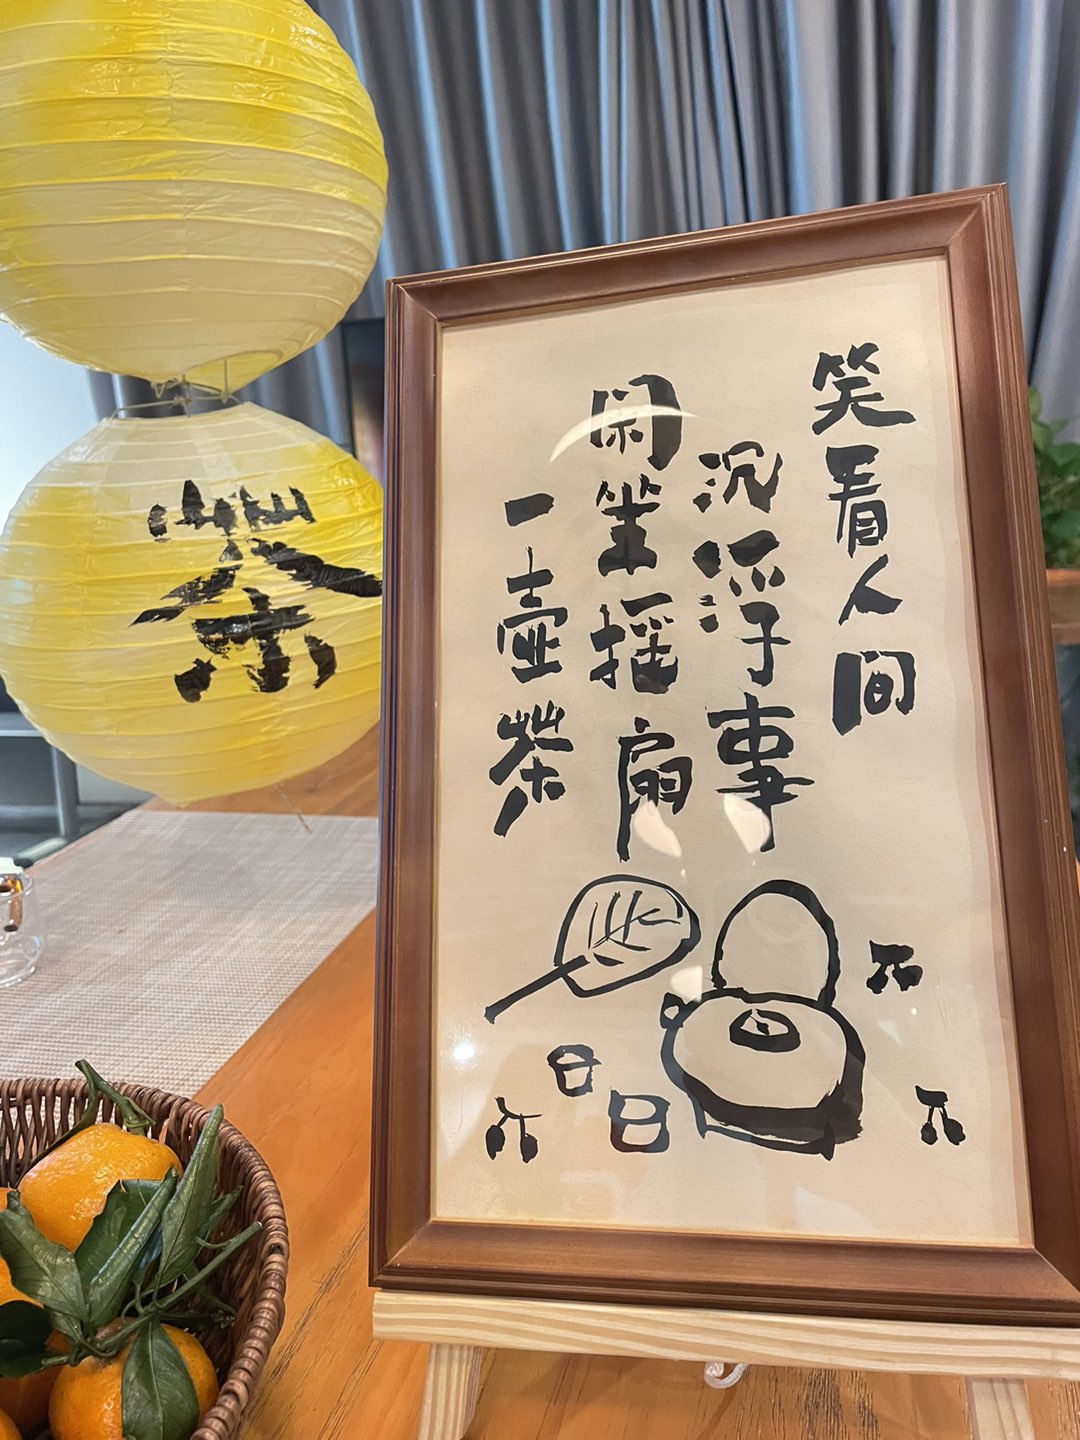 笑看人间
沉浮事
闲坐摇扇
一壶茶
茶